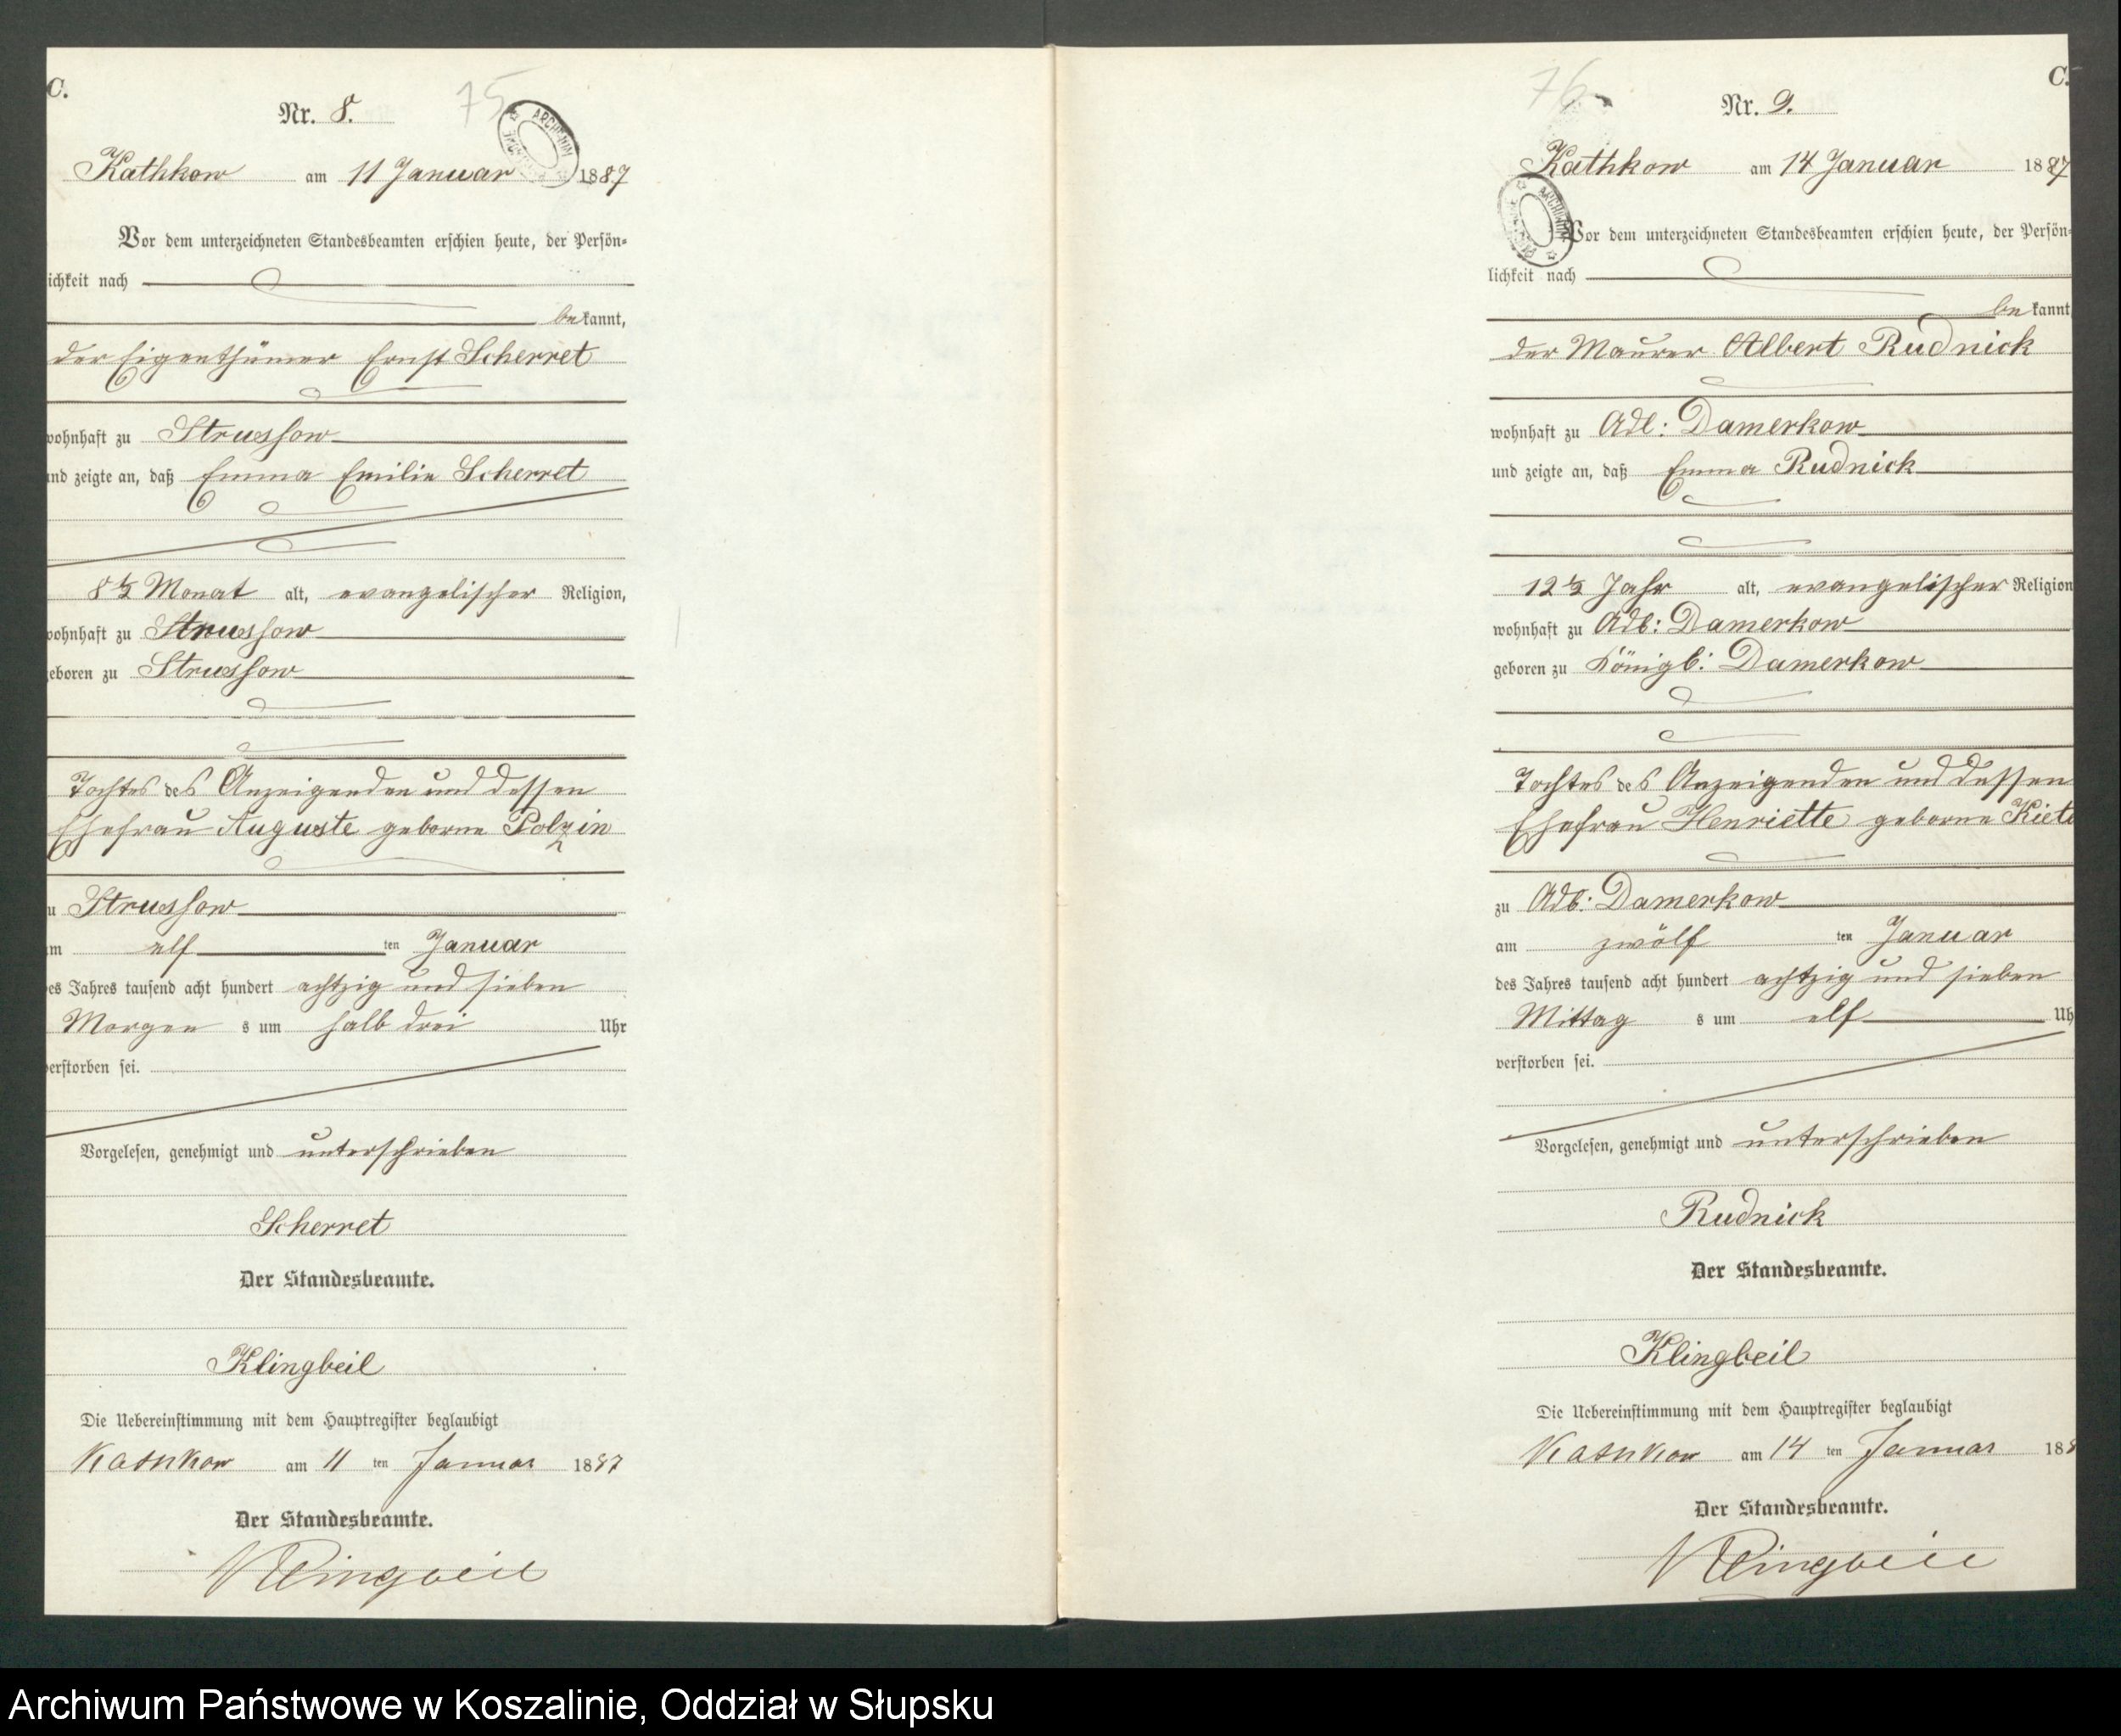 C.
Nr. 8.
75
Kathkow am 11 Januar 1887
Vor dem unterzeichneten Standesbeamten erschien heute, der Persön=
ichkeit nach
be kannt,
der Eigenthümer Ernst Scherret
wohnhaft zu Strussow
und zeigte an, daß Emma Emilie Scherret
8 1/2 Monat alt, evangelischer Religion,
wohnhaft zu Strussow
geboren zu Strussow
Tochter des Anzeigenden und dessen
Ehefrau Auguste geborne Polzin
zu Strussow
am elf ten Januar
des Jahres tausend acht hundert achtzig und sieben
Morgen s um halb drei Uhr
verstorben sei.
Vorgelesen, genehmigt und unterschrieben
Scherret
Der Standesbeamte.
Klingbeil
Die Uebereinstimmung mit dem Hauptregister beglaubigt
Kathkow am 11 ten Januar 1887
Der Standesbeamte.
Klingbeil
C.
Nr. 9.
76
Kathkow am 14 Januar 1887
Vor dem unterzeichneten Standesbeamten erschien heute, der Persön=
lichkeit nach
be kannt
der Maurer Albert Rudnick
wohnhaft zu Adl: Damerkow
und zeigte an, daß Emma Rudnick
12 1/2 Jahr alt, evangelischer Religion
wohnhaft zu Adl: Damerkow
geboren zu Königl: Damerkow
Tochter des Anzeigenden und dessen
Ehefrau Henriette geborne
zu Adl: Damerkow
am zwölf ten Januar
des Jahres tausend acht hundert achtzig und sieben
Mittag s um elf Uh
verstorben sei.
Vorgelesen, genehmigt und unterschrieben
Rudnick
Der Standesbeamte.
Klingbeil
Die Uebereinstimmung mit dem Hauptregister beglaubigt
Kathkow am 14 ten Januar 188
Der Standesbeamte.
Klingbeil
Archiwum Państwowe w Koszalinie, Oddział w Słupsku